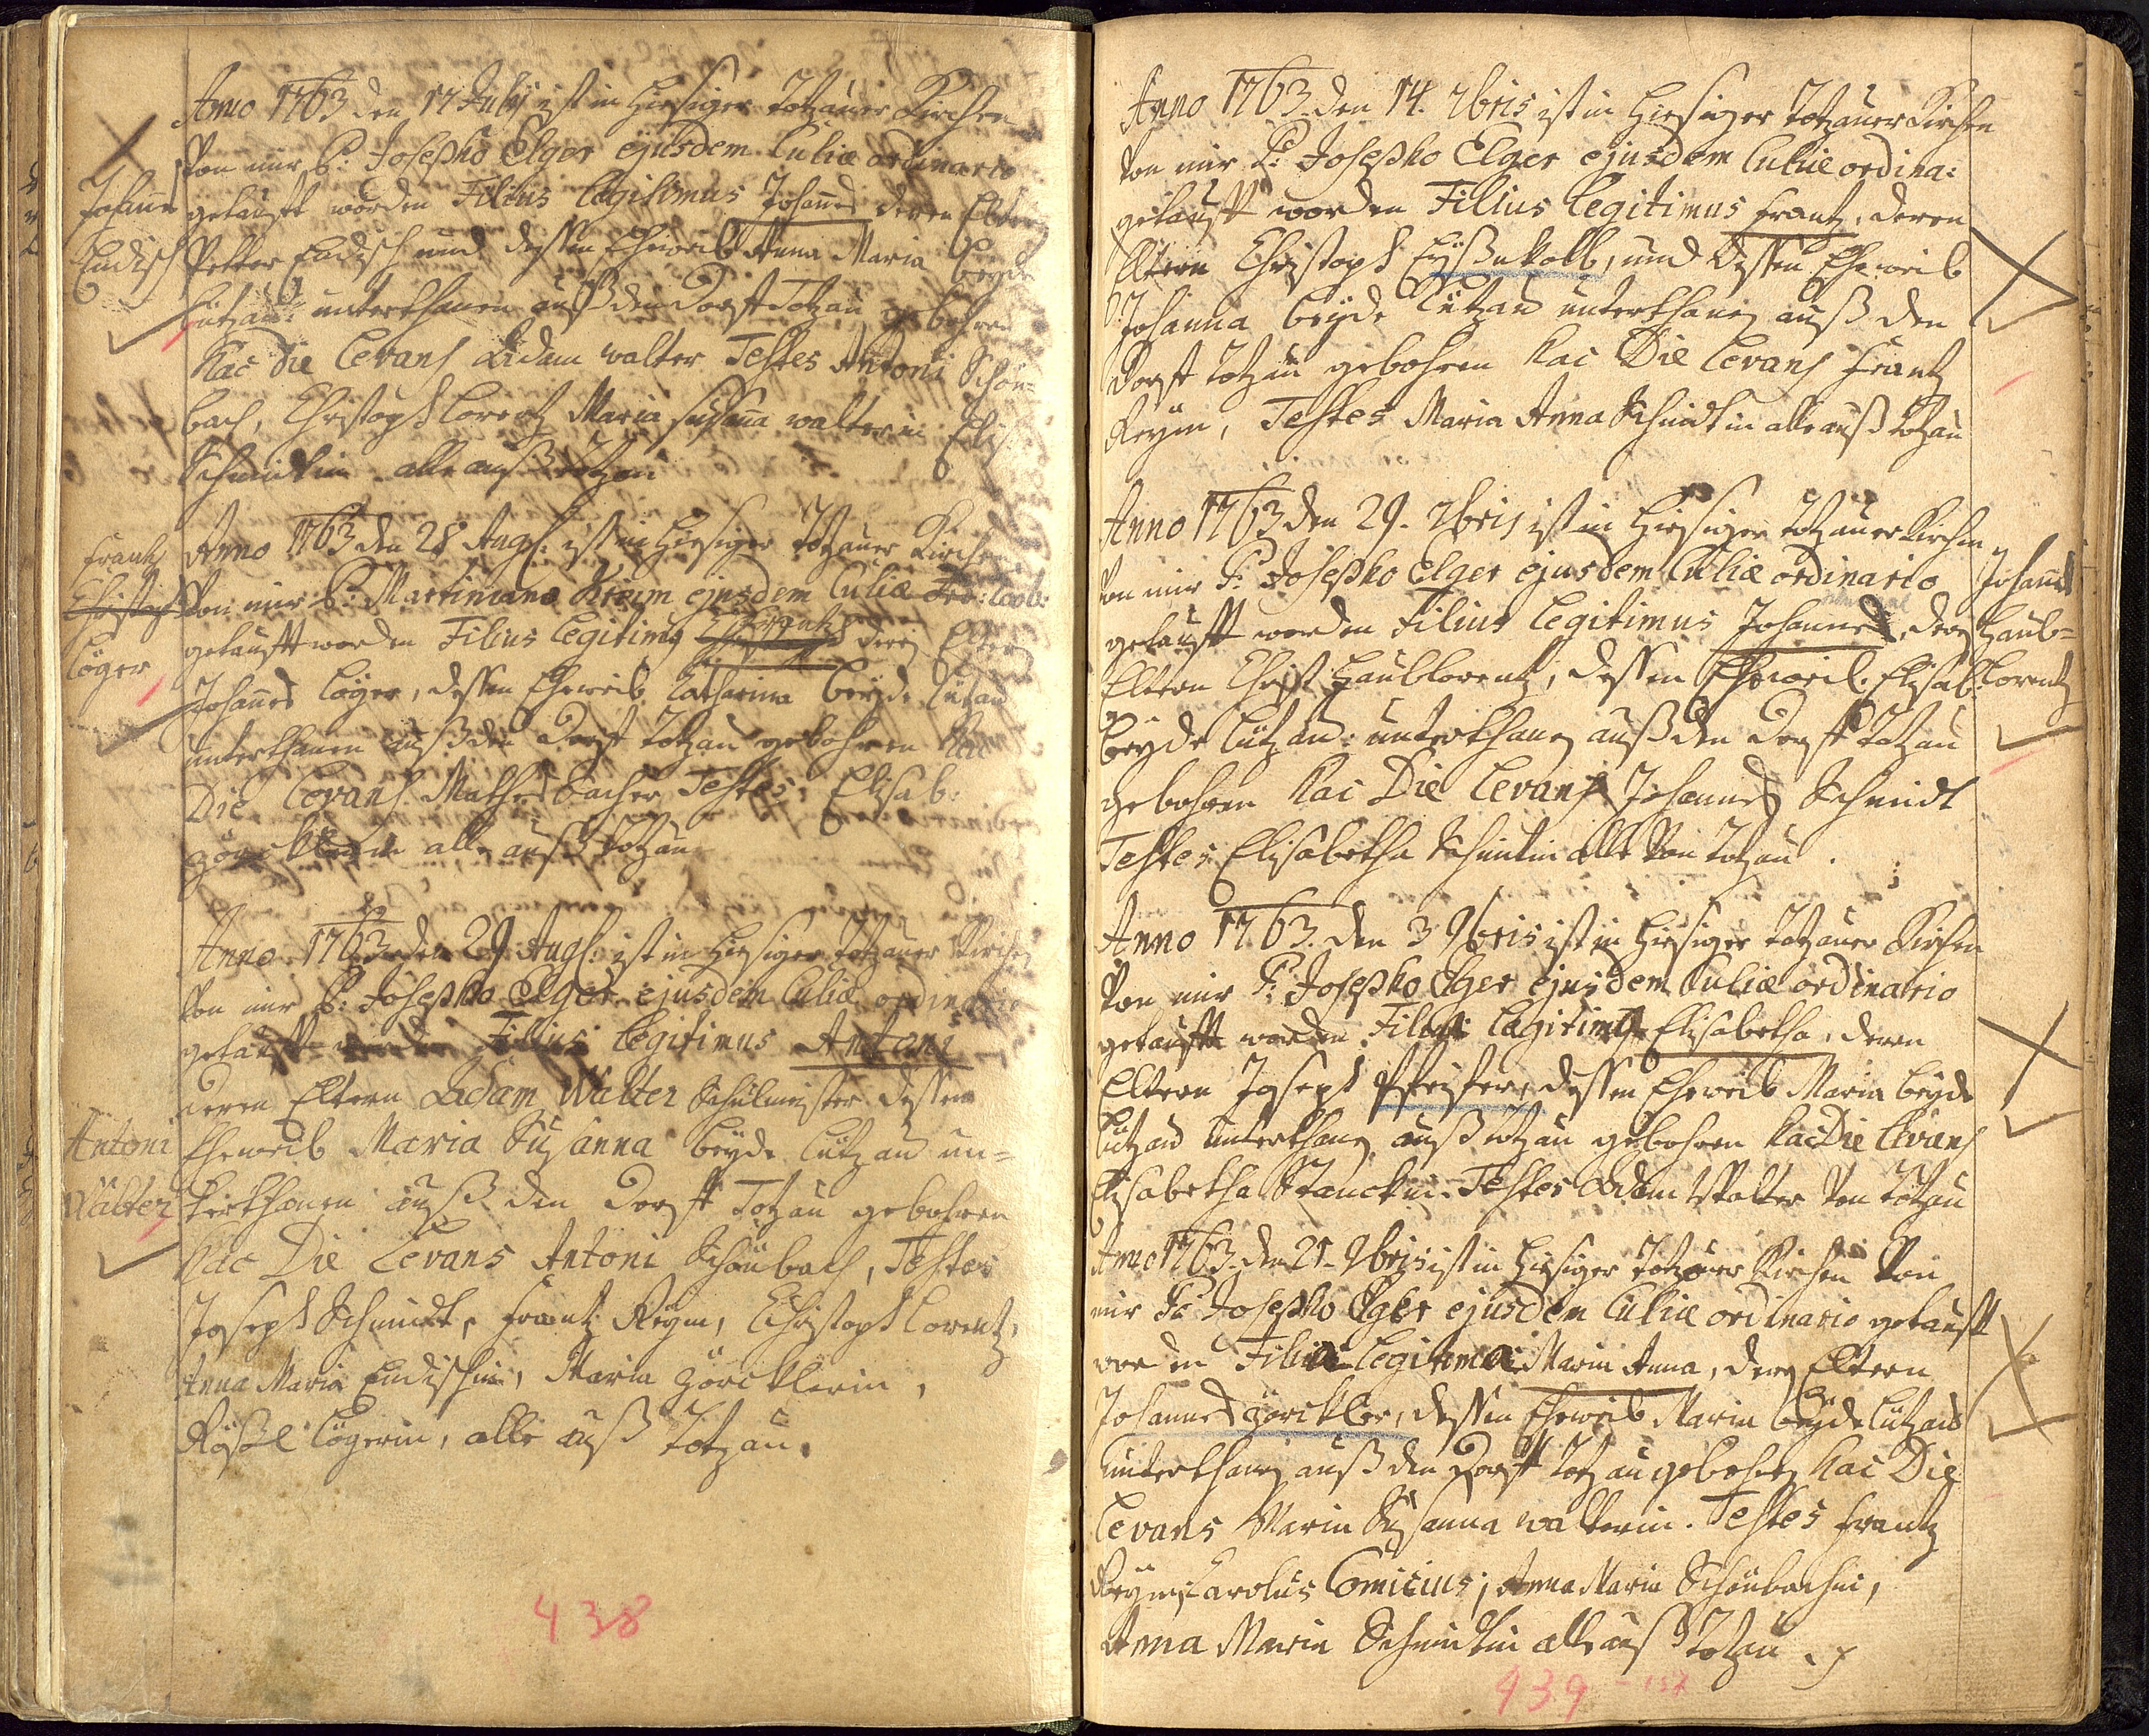 Anno 1763 den 17 Julij ist in hiesiger Totzauer Kirchen
Von mir P: Josepho Elger ejusdem Ecclice ordinario
Johannes
getaufft worden Filius legitimus Johannes deren Eltern
Endisch
Petter Endisch und dessen Eheweib Anna Maria beyde
Lutzau: unterthanen auß den Dorff Totzau gebohren
hac die levans Adam walter Testes Antoni Schön=
bach, Christoph Lorentz Maria Susanna walterin Elis.
Schmidtin alle auß Totzau
Frantz
Anno 1763 den 28 Augs: ist in hiesiger Totzauer Kirchen
Christoph
Von mir P: Martiniano ejusdem
getaufft worden Filius legitimus Frantz deren Eltern
Löger
Johannes Löger, dessen Eheweib Catharina beyde Lutzau
unterthanen auß den Dorff Totzau gebohren hac
Die levans Mathes bacher Testes Elisab:
görcklerin alle auß Totzau
Anno 1763 den 29 Augs: ist in hiesiger Totzauer Kirchen
Von mir P: Josepho Elger ejusdem Eccliæ ordinario
getaufft worden Filius legitimus Antoni
deren Eltern Adam Walter Schulmeister dessen
Antoni
Eheweib Maria Susanna beyde Lutzau un=
Walter
terthanen auß den Dorff Totzau gebohren
hac Die levans Antoni Schönbach, Testes
Joseph Schmidt, Frantz Reym, Christoph Lorentz,
Anna Maria Endischin, Maria görcklerin,
Rosse Lögerin, alle auß Totzau.
438
Anno 1763 den 14. 7bris ist in hiesiger Totzauer Kirchen
Von mir P: Josepho Elger ejusdem Eccliæ ordina:
getaufft worden Filius legitimus Frantz, deren
Eltern Christoph Eyßnkolb, und dessen Eheweib
Johanna beyde Lutzau unterthanen auß den
Dorff Totzau gebohren hac Die levans Frantz
Reym, Testes Maria Anna Schmidtin alle auß Totzau
Anno 1763 den 29. 7bris ist in hiesiger Totzauer Kirchen
von mir P: Josepho Elger ejusdem Eccliæ ordinario
Johannes
getaufft worden Filius legitimus Johannes, deren
Haub=
Eltern Christ: Haublorentz, dessen Eheweib Elisab:
lorentz
beyde Lutzau: unterthanen auß den Dorff Totzau
gebohren hac Die levans Johannes Schmidt
Testes Elisabetha Schmidtin alle von Totzau.
Anno 1763. den 3 9bris ist in hiesiger Totzauer Kirchen
Von mir P: Josepho Elger ejusdem Eccliæ ordinario
getaufft worden Filia legitima Elisabetha, deren
Eltern Joseph Pfeiffer, dessen Eheweib Maria beyde
Lutzau unterthanen auß Totzau gebohren hac Die levans
Elisabetha Stanckin. Testes Adam Walter von Totzau
Anno 1763. den 21. 9bris ist in hiesiger Totzauer Kirchen Von
mir P: Josepho Elger ejusdem Eccliæ ordinario getaufft
worden Filia legitima Maria Anna, deren Eltern
Johannes görckler, dessen Eheweib Maria beyde Lutzau
unterthanen auß den Dorff Totzau gebohren hac Die
levans Maria Susanna walterin. Testes Frantz
Reym, Carolus Comicius, Anna Maria Schönbachin,
Anna Maria Schmidtin alle auß Totzau.
439